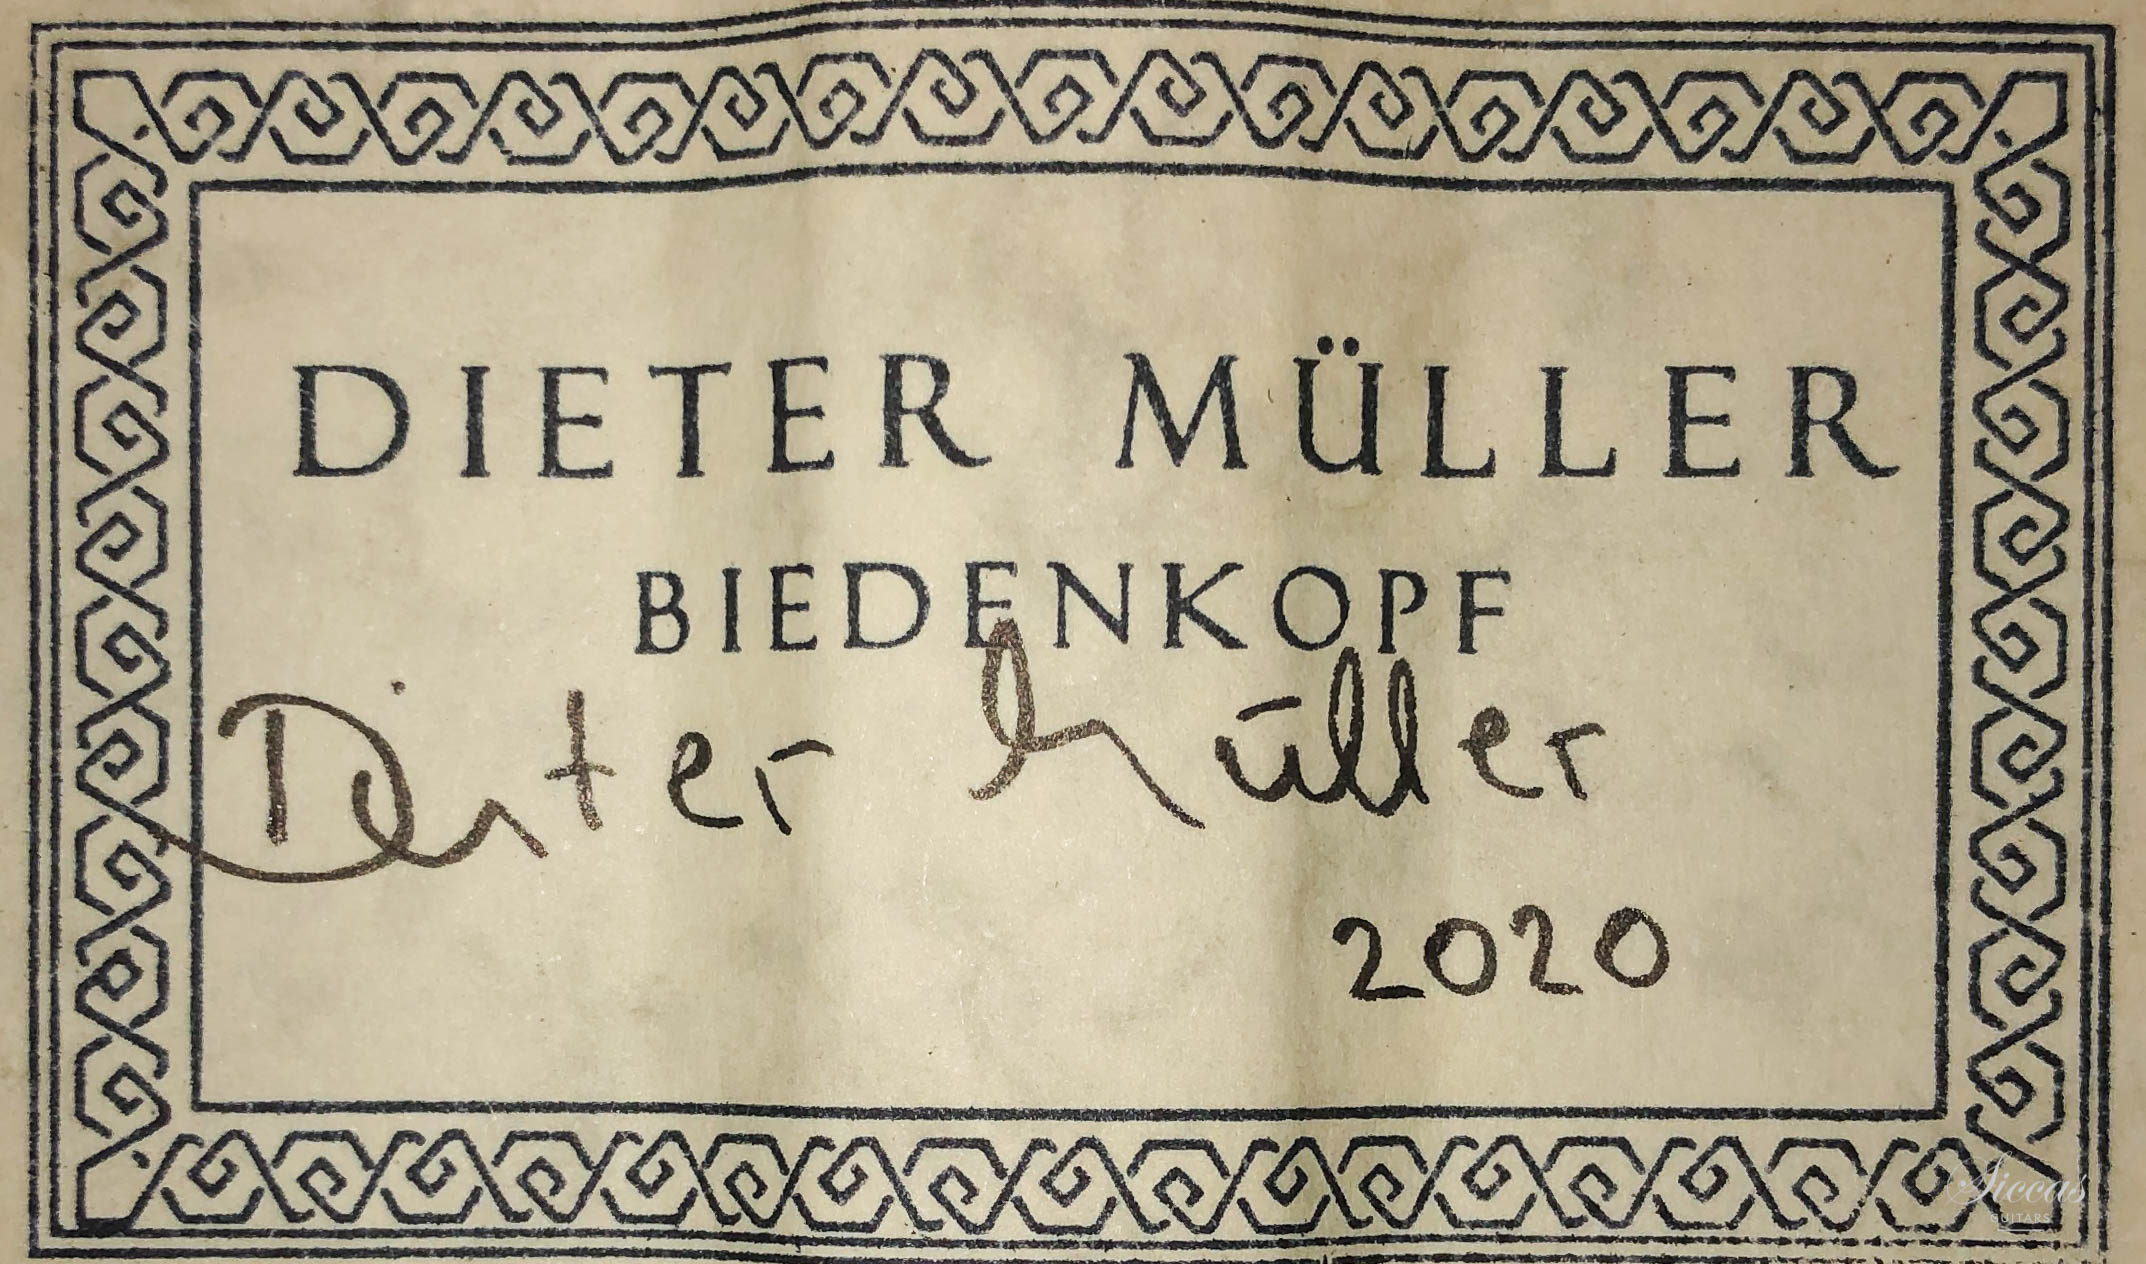 DIETER MÜLLER
BIEDENKOPF
Dieter Müller
2020
Siccas
GUITARS